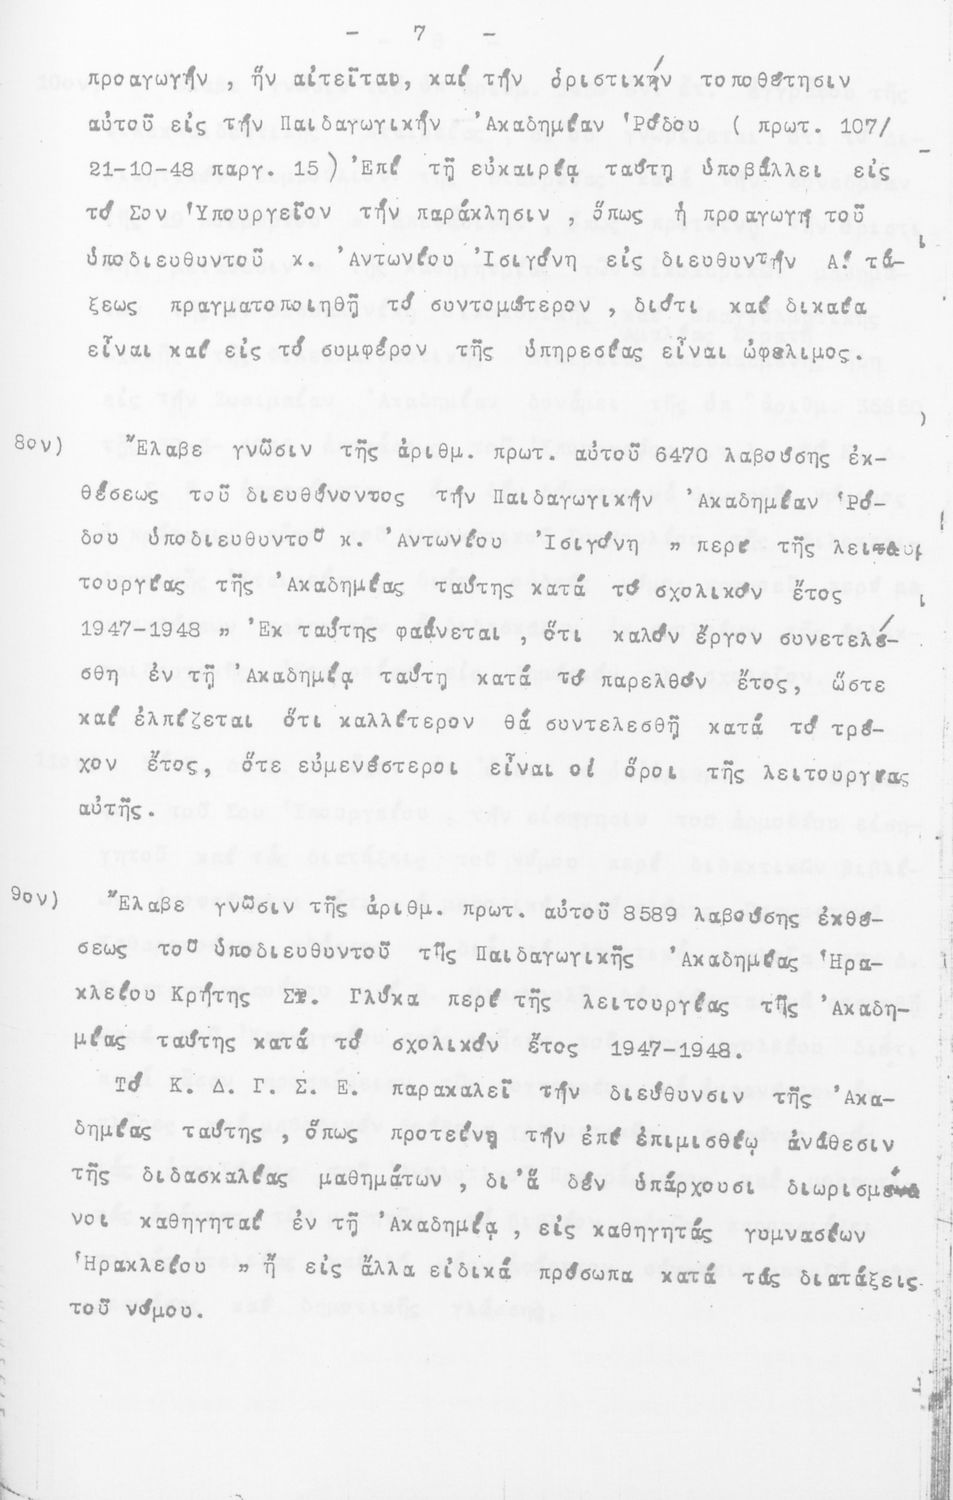 - 7 -
προαγωγήν , ἥν αἰτεῖται, καί τήν ὁριστικήν τοποθέτησιν
αὐτοῦ εἰς τήν Παιδαγωγικήν Ἀκαδημίαν Ῥόδου ( πρωτ. 107/
21-10-48 παργ. 15 ) Ἐπί τῇ εὐκαιρίᾳ ταύτῃ ὑποβάλλει εἰς
τό Σον Ὑπουργεῖον τήν παράκλησιν , ὅπως ἡ προαγωγή τοῦ
ὑποδιευθυντοῦ κ. Ἀντωνίου Ἰσιγόνη εἰς διευθυντήν Α! τά-
ξεως πραγματοποιηθῇ τό συντομώτερον , διότι καί δικαία
εἶναι καί εἰς τό συμφέρον τῆς ὑπηρεσίας εἶναι ὠφέλιμος.
8ον) Ἔλαβε γνῶσιν τῆς ἀριθμ. πρωτ. αὐτοῦ 6470 λαβούσης ἐκ-
θέσεως τοῦ διευθύνοντος τήν Παιδαγωγικήν Ἀκαδημίαν Ῥό-
δου ὑποδιευθυντοῦ κ. Ἀντωνίου Ἰσιγόνη " περί τῆς λει-
τουργίας τῆς Ἀκαδημίας ταύτης κατά τό σχολικόν ἔτος
1947-1948 " Ἐκ ταύτης φαίνεται , ὅτι καλόν ἔργον συνετελέ-
σθη ἐν τῇ Ἀκαδημίᾳ ταύτῃ κατά τό παρελθόν ἔτος, ὥστε
καί ἐλπίζεται ὅτι καλλίτερον θά συντελεσθῇ κατά τό τρέ-
χον ἔτος, ὅτε εὐμενέστεροι εἶναι οἱ ὅροι τῆς λειτουργίας
αὐτῆς.
9ον) Ἔλαβε γνῶσιν τῆς ἀριθμ. πρωτ. αὐτοῦ 8589 λαβούσης ἐκθέ-
σεως τοῦ ὑποδιευθυντοῦ τῆς Παιδαγωγικῆς Ἀκαδημίας Ἡρα-
κλείου Κρήτης ΣΤ. Γλύκα περί τῆς λειτουργίας τῆς Ἀκαδη-
μίας ταύτης κατά τό σχολικόν ἔτος 1947-1948.
Τό Κ. Δ. Γ. Σ. Ε. παρακαλεῖ τήν διεύθυνσιν τῆς Ἀκα-
δημίας ταύτης , ὅπως προτείνῃ τήν ἐπί ἐπιμισθίῳ ἀνάθεσιν
τῆς διδασκαλίας μαθημάτων , δι'ἅ δέν ὑπάρχουσι διωρισμέ-
νοι καθηγηταί ἐν τῇ Ἀκαδημίᾳ , εἰς καθηγητάς γυμνασίων
Ἡρακλείου " ἤ εἰς ἄλλα εἰδικά πρόσωπα κατά τάς διατάξεις
τοῦ νόμου.